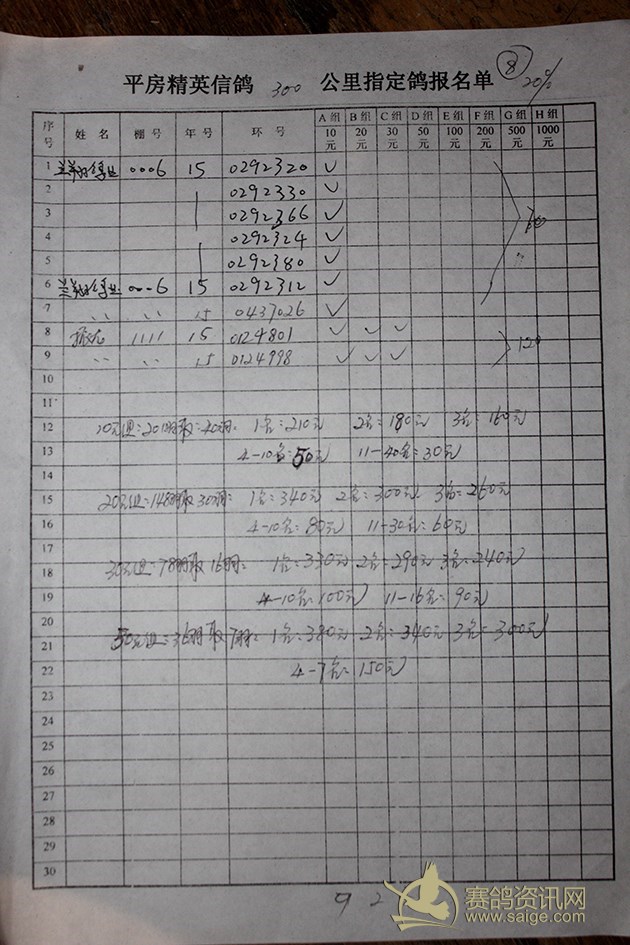 平房精英信鸽 300 公里指定鸽报名单 ⑧ 20%
序号 姓名 棚号 年号 环号 A组10元 B组20元 C组30元 D组50元 E组100元 F组200元 G组500元 H组1000元
1 0006 15 0292320 ✓
2 0292330 ✓
3 0292366 ✓
4 0292324 ✓
5 0292380 ✓
6 0006 15 0292312 ✓
7 〃 〃 15 0437026 ✓
8 1111 15 0124801 ✓ ✓ ✓
9 〃 〃 15 0124998 ✓ ✓ ✓ 120
10
11
12 10元组=201羽取=40羽: 1名=210元 2名=180元 3名=160元
13 4-10名=50元 11-40名=30元
14
15 20元组=148羽取30羽: 1名=340元 2名=300元 3名=260元
16 4-10名=80元 11-30名=60元
17
18 30元组=78羽取16羽: 1名=330元 2名=290元 3名=240元
19 4-10名=100元 11-16名=90元
20
21 50元组=36羽取7羽: 1名=380元 2名=340元 3名=300元
22 4-7名=150元
23
24
25
26
27
28
29
30
9 2
赛鸽资讯网
www.saige.com